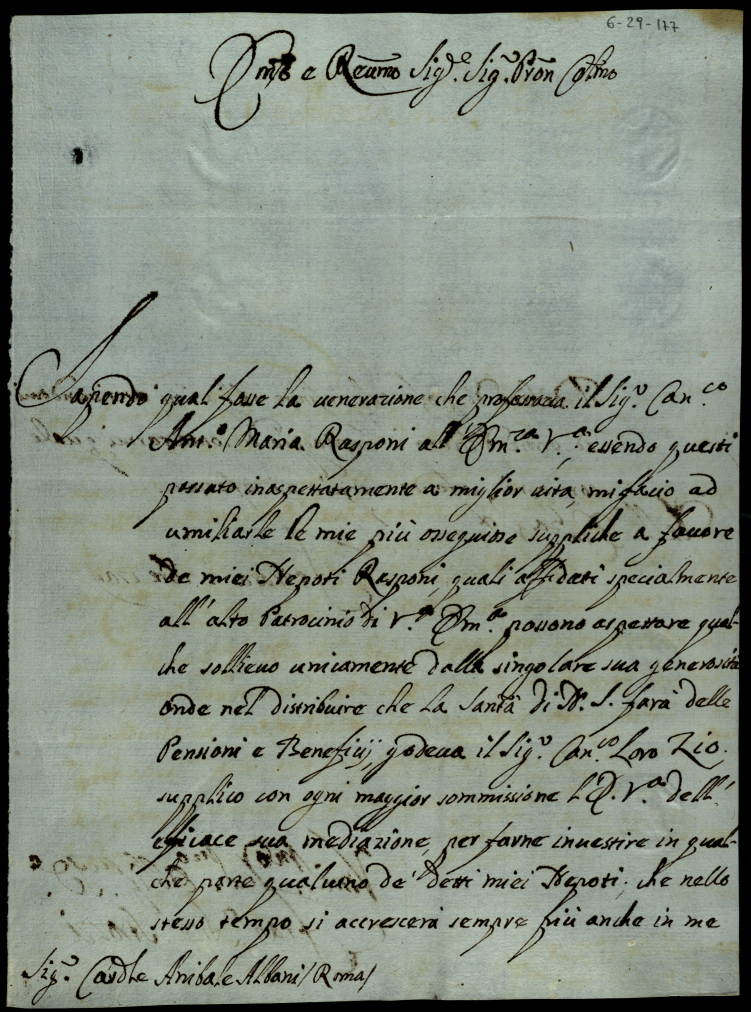 6-29-177
Em̃o e Reũmo Sig.r Sig.r Pron Col̃mo
Sapiendo quali fosse la venerazione che professava il Sig.r Can.co
Ant.o Maria Rasponi all' Em.za V.a, essendo questi
passato inaspettatamente a miglior vita, mi facio ad
umiliarle le mie più ossequiose suppliche a favore
de miei Nepoti Rasponi, quali affidati specialmente
all' alto Patrocinio di V.a Em.a possono aspettare qual-
che sollievo unicamente dalla singolare sua generosità
onde nel distribuire che la Santà di N. S. farà delle
Pensioni e Beneficij, godeva il Sig.r Can.co Loro Zio,
supplico con ogni maggior sommissione l'E. V.a dell'
efficace sua mediazione, per farne investire in qual-
che parte qualuno de' detti miei Nepoti, che nello
stesso tempo si accrescerà sempre più anche in me
Sig.r Cardle Anibale Albani /Roma/